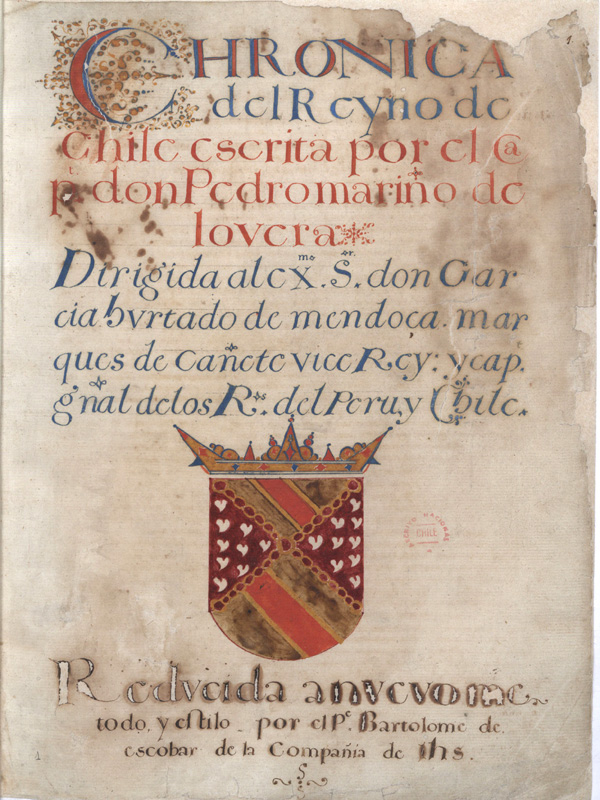 1.
CHRONICA
del Reyno de
Chile escrita por el Ca
p. don Pedro mariño de
lovera
Dirigida al ex.mo S.or don Gar
cia hurtado de mendoça. mar
ques de Cañete vice Rey: y cap.
gñal de los R.s del Peru y Chile.
ARCHIVO NACIONAL
CHILE
Reducida a nuevo me
todo, y estilo por el Pe. Bartolome de
escobar de la Compañia de ihs.